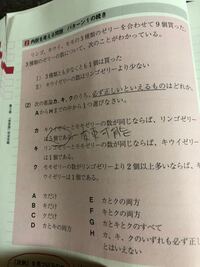 内訳を考える問題 パターン1の続き
リンゴ、キウイ、モモの3種類のゼリーを合わせて9個買った
3種類のゼリーの数について、次のことがわかっている。
1) 3種類とも少なくとも1個は買った
2) キウイゼリーの数はリンゴゼリーより少ない
(2) 次の推論カ、キ、クのうち、必ず正しいといえるものはどれか。
AからHまでの中から1つ選びなさい。
カ キウイゼリーとモモゼリーの数が同じならば、リンゴゼリー
は5個である
変更可能
キ リンゴゼリーとモモゼリーの数が同じならば、キウイゼ
リーは1個である
ク モモゼリーの数がリンゴゼリーより2個以上多いならば、キ
ウイゼリーは1個である
A カだけ
B キだけ
C クだけ
D カとキの両方
E カとクの両方
F キとクの両方
G カとキとクのすべて
H カ、キ、クのいずれも必ず正し
とはいえない